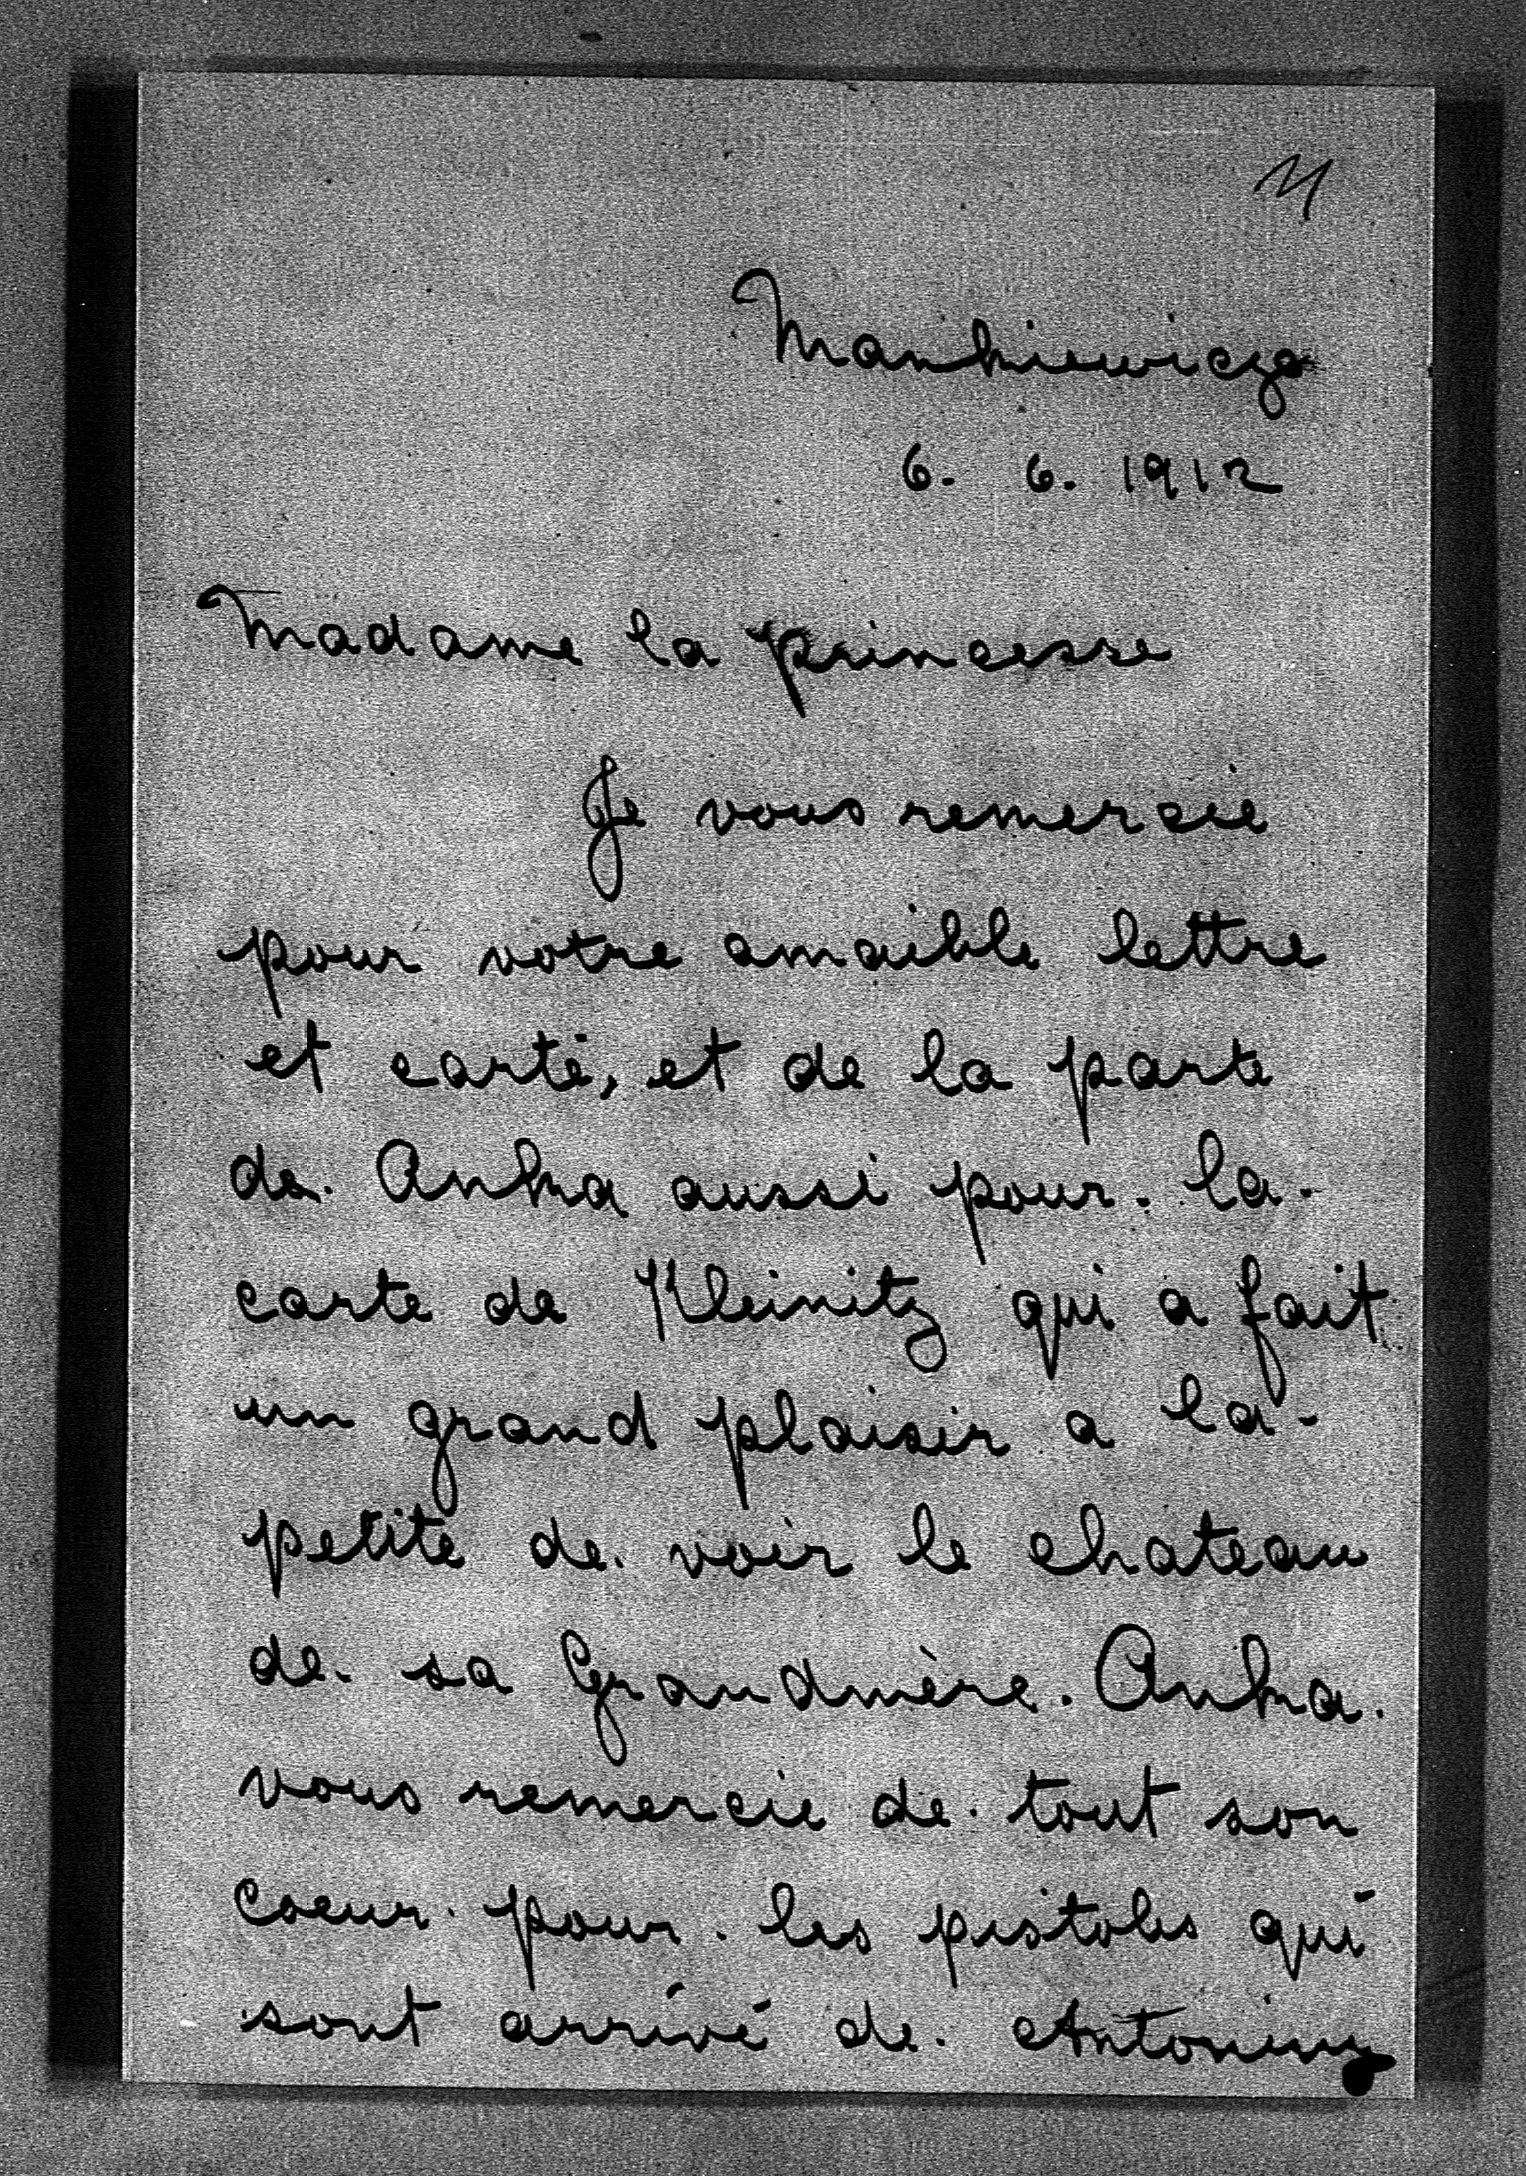 11
Mankiewicze
6. 6. 1912
Madame la princesse
Je vous remercie
pour votre amaible lettre
et carte, et de la parte
de. Anka aussi pour. la.
carte de Kleinitz qui a fait
un grand plaisir a la.
petite de. voir le chateau
de. sa Grandmère. Anka.
vous remercie de. tout son
coeur. pour. les pistoles qui
sont arrivé de. Antoniny